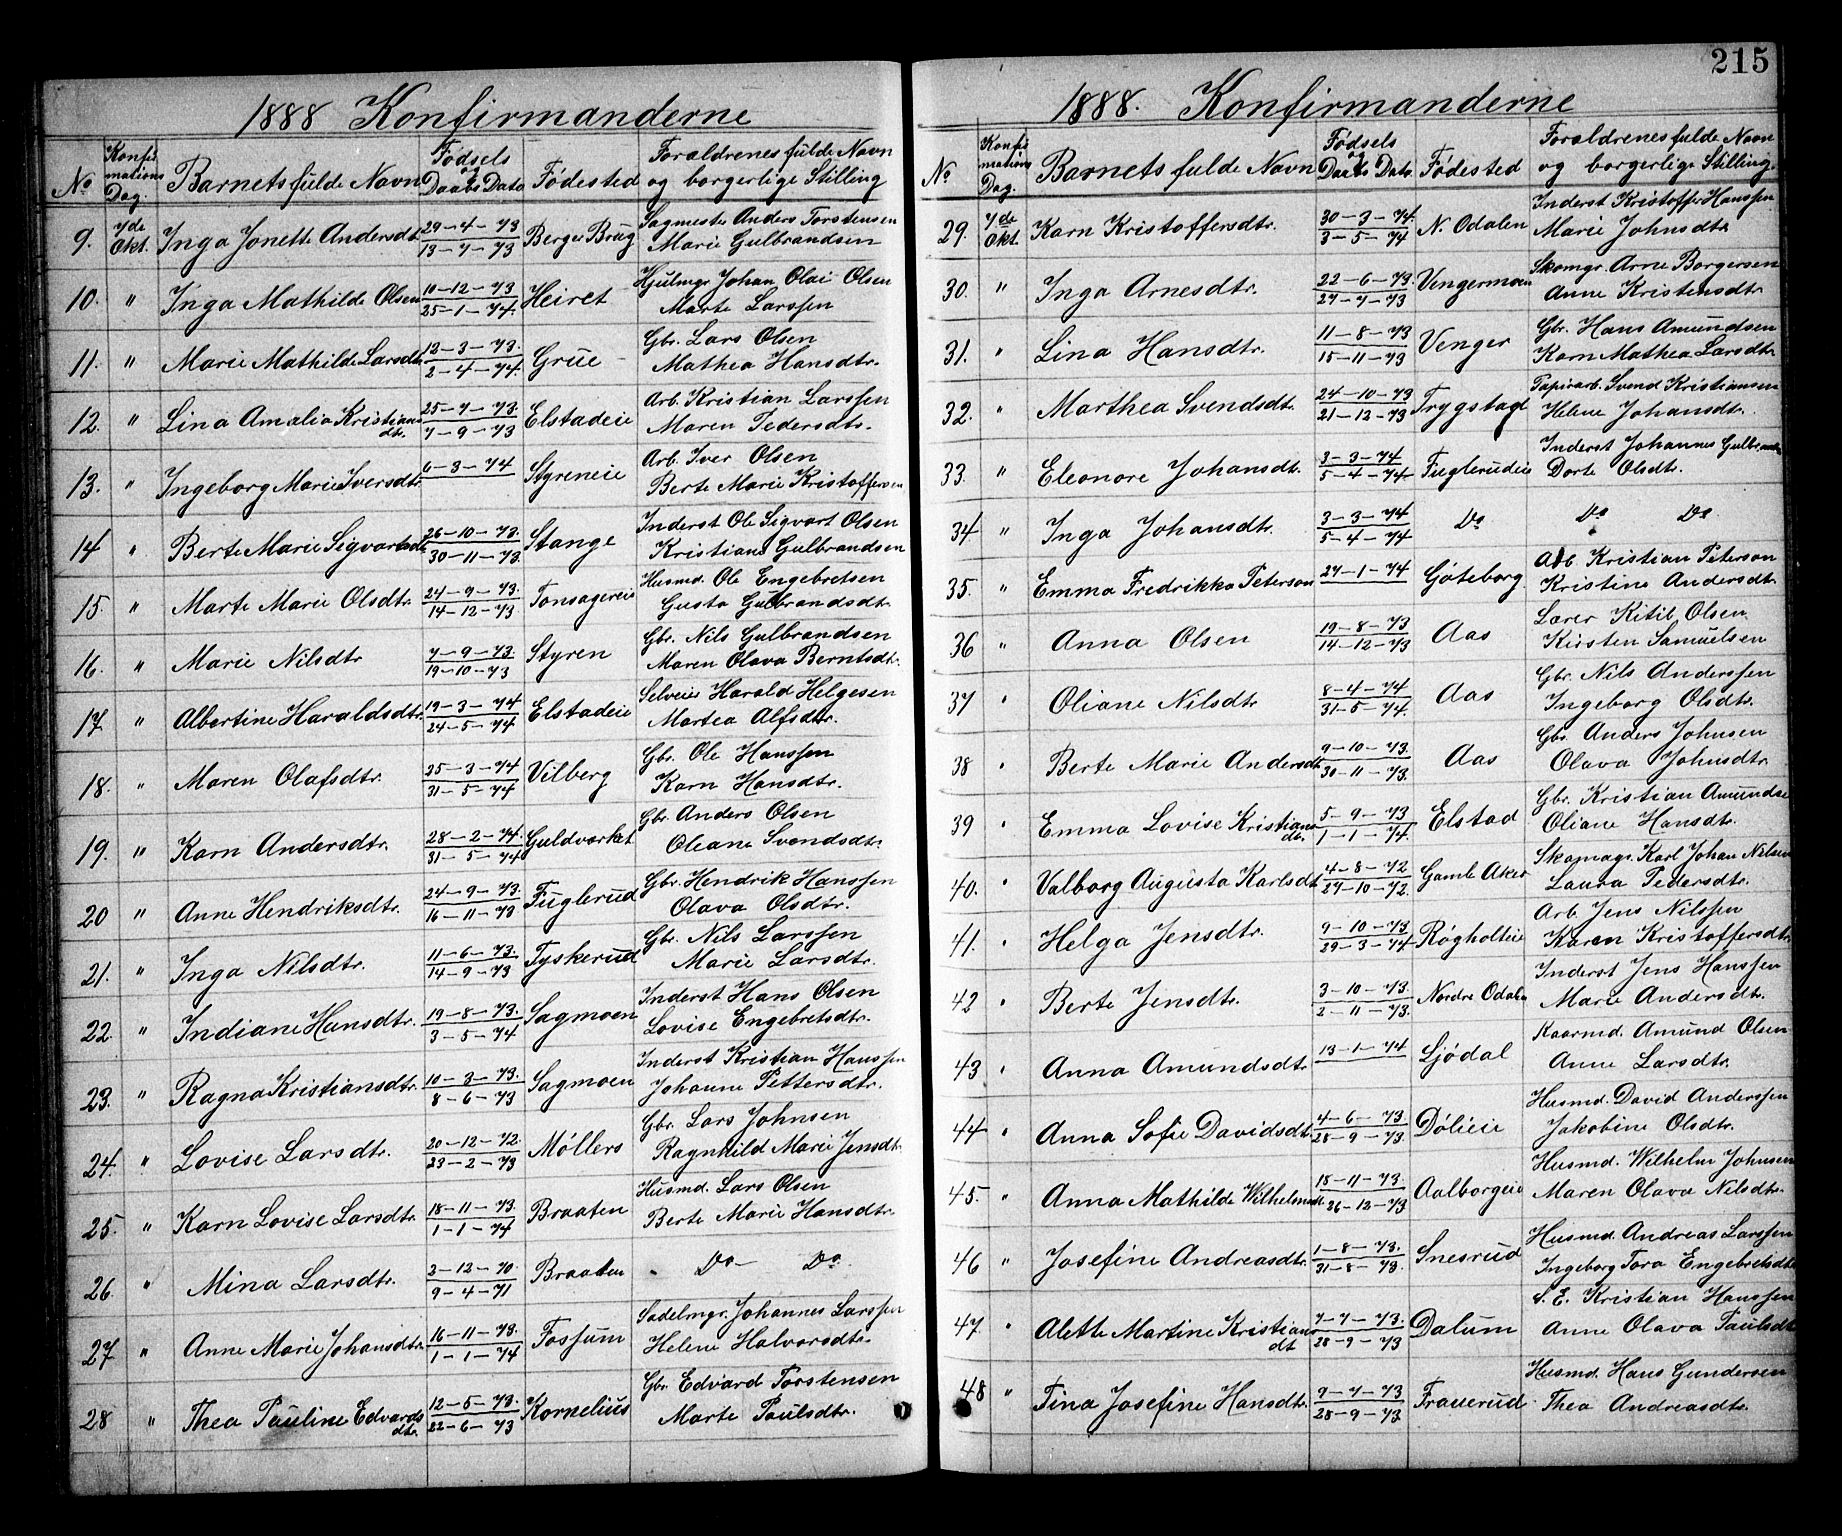 1888 Konfirmanderne
No
Konfirmations Dag.
Barnets fulde Navn
Fødsels og Daabs Dato
Fødested
Foraldrenes fulde Navn og borgerlige Stilling
9. 7de Okt. Inga Jonette Andersdt. 29-4-73 Berger Brug Sagmester Anders Torstensen
13-7-73 Marie Gulbrandsen
10. " Inga Mathilde Olsen 10-12-73 Heiret Hjulmgr. Johan Olai Olsen
25-1-74. Marte Larssen
11. " Marie Mathilde Larsdtr. 12-3-73. Grue Gbr. Lars Olsen
2-4-74. Mathea Hansdtr.
12. " Lina Amalia Kristians 25-7-73. Elstadeie Arb. Kristian Larssen
dtr. 7-9-73 Maren Pedersdtr.
13. " Ingeborg Marie Iversdtr. 6-3-74 Styreneie Arb. Iver Olsen
Berte Marie Kristoffersen
14 " Berte Marie Sigvartsdtr. 26-10-73. Stange Inderst Ole Sigvart Olsen
30-11-73. Kristiane Gulbrandsen
15. " Marte Marie Olsdtr. 24-9-73. Tonsagereie Husmd. Ole Engebretsen
14-12-73 Gusta Gulbrandsdtr.
16. " Marie Nilsdtr 7-9-73. Styren Gbr. Nils Gulbrandsen
19-10-73 Maren Olava Berntsdtr.
17. " Albertine Haraldsdtr. 19-3-74 Elstadeie Selveier Harald Helgesen
24-5-74 Martea Alfsdtr.
18. " Maren Olafsdtr. 25-3-74 Vilberg Gbr. Ole Hanssen
31-5-74 Karn Hansdtr.
19. " Karn Andersdtr. 28-2-74. Guldvarket Gbr. Anders Olsen
31-5-74 Oleane Svendsdtr.
20 " Anne Hendriksdtr. 24-9-73. Fuglerud Gbr. Hendrik Hanssen
16-11-73 Olava Olsdtr.
21. " Inga Nilsdtr. 11-6-73. Tyskerud Gbr. Nils Larssen
14-9-73 Marie Larsdtr.
22. " Indiane Hansdtr. 19-8-73. Sagmoen Inderst Hans Olsen
3-5-74 Lovise Engebretsdtr.
23. " Ragna Kristiansdtr. 10-3-73. Sagmoen Inderst Kristian Hanssen
8-6-73 Johanne Pettersdtr.
24. " Lovise Larsdtr. 20-12-72. Møllers Gbr. Lars Johnsen
23-2-73 Ragnhild Marie Jensdtr.
25. " Karn Lovise Larsdtr. 18-11-73. Braaten Husmd. Lars Olsen
1-1-74 Berte Marie Hansdtr.
26. " Mina Larsdtr. 3-12-70. Braaten Do Do
9-4-71
27 " Anne Marie Johansdtr. 16-11-73. Fossum Sadelmgr. Johannes Larssen
1-1-74 Helene Halvorsdtr.
28 " Thea Pauline Edvards 12-5-73. Kornelius Gbr. Edvard Torstensen
dtr. 22-6-73 Marte Paulsdtr.
215
1888. Konfirmanderne
No
Konfirmations Dag.
Barnets fulde Navn
Fødsels og Daabs Dato.
Fødested
Foraldrenes fulde Navn og borgerlige Stilling.
29. 7de Okt. Karn Kristoffersdtr. 30-3-74. N. Odalen Inderst Kristoffer Hanssen
3-5-74 Marie Johnsdtr
30. " Inga Arnesdtr. 22-6-73. Vengermoen Skomgr. Arne Borgersen
27-7-73 Anne Kristensdtr.
31. " Lina Hansdtr. 11-8-73 Venger Gbr. Hans Amundsen
15-11-73 Karn Mathea Larsdtr.
32. " Marthea Svendsdt. 24-10-73 Trygstad Papirarb. Svend Kristiansen
21-12-73 Helene Johansdtr.
33. " Eleonore Johansdt. 3-3-74 Fuglerudeie Inderst Johannes Gulbrandsen
5-4-74 Dorte Olsdtr.
34 " Inga Johansdtr. 3-3-74 Do Do Do
5-4-74
35. " Emma Fredrikka Peterson 27-1-74 Göteborg. Arb Kristian Peterson
Kristine Andersdtr.
36 " Anna Olsen 19-8-73 Aas Lærer Kitil Olsen
14-12-73 Kirsten Samuelsen
37 " Oliane Nilsdtr 8-4-74 Aas Gbr. Nils Anderssen
31-5-74. Ingeborg Olsdtr.
38 " Berte Marie Andersdt. 9-10-73. Aas Gbr. Anders Johnsen
30-11-73. Olava Johnsdtr.
39 " Emma Lovise Kristians 5-9-73 Elstad Gbr. Kristian Amundse
dtr. 1-1-74. Oliane Hansdtr.
40. " Valborg Augusta Karlsdt. 4-8-72 Gamle Aker Skomagr. Karl Johan Nilsen
27-10-72. Laura Pedersdtr.
41. " Helga Jensdtr. 9-10-73 Røgholteie Arb. Jens Nilssen
29-3-74 Karen Kristoffersdtr
42 " Berte Jensdtr. 3-10-73. Nordre Odalen Inderst Jens Hanssen
2-11-73. Marie Andersdtr.
43 " Anna Amundsdt. 13-1-74 Ljödal Kaarmd. Amund Olsen
Anne Larsdtr.
44 " Anna Sofie Davidsdt. 4-6-73. Dølieie Husmd. David Anderssen
28-9-73. Jakobine Olsdtr.
45. " Anna Mathilde Wilhelmsdt. 15-11-73. Aalborgeie Husmd. Wilhelm Johnsen
26-12-73 Maren Olava Nilsdtr.
46 " Josefine Andreasdtr. 1-8-73. Snesrud Husmd. Andreas Larssen
31-8-73. Ingeborg Tora Engebretsdtr
47 " Alette Martine Kristians 7-7-73. Dalum S. E. Kristian Hanssen
dt 28-9-73 Anne Olava Paulsdt
48 " Tina Josefine Hansdtr. 9-7-73 Frauerud Husmd. Hans Gundersen
28-9-73 Thea Andreasdtr.